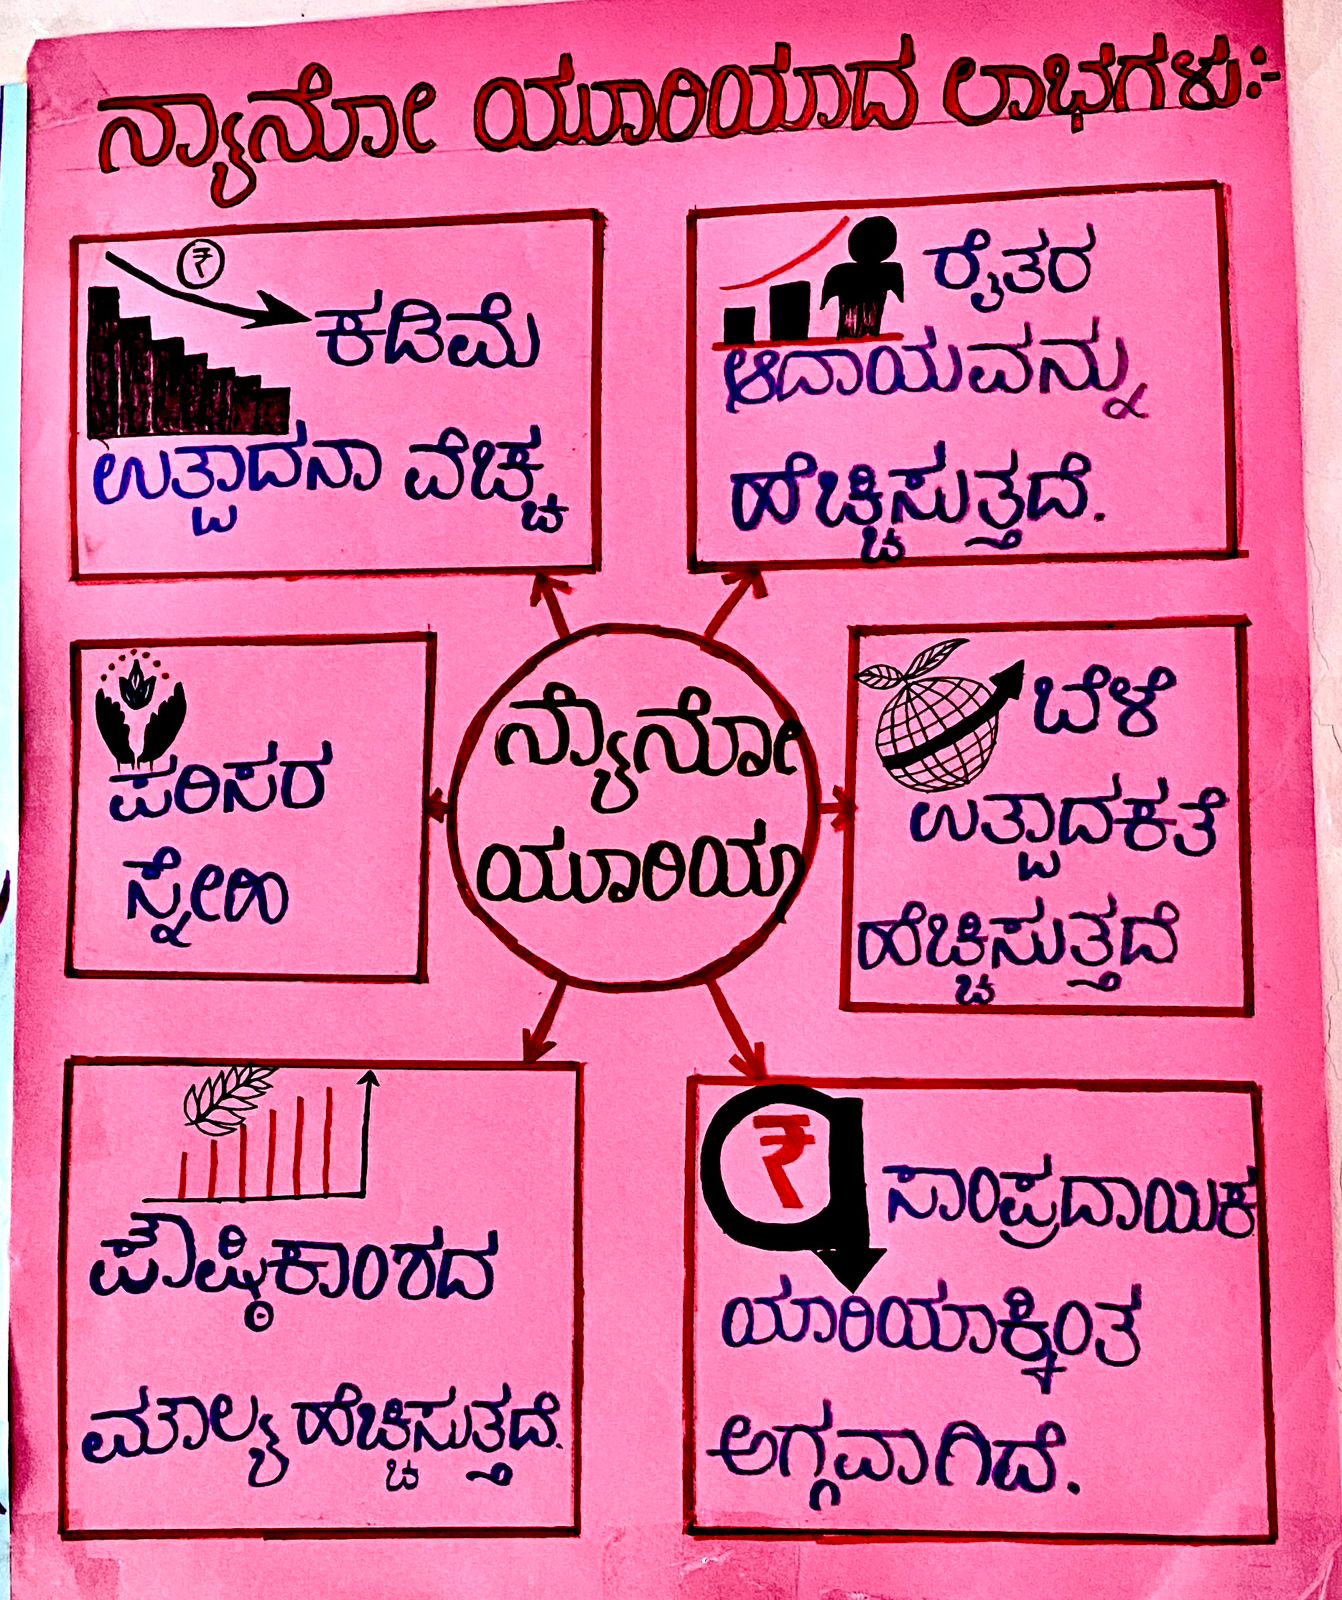 ನ್ಯಾನೋ ಯೂರಿಯಾದ ಲಾಭಗಳು:-
₹
ಕಡಿಮೆ
ಉತ್ಪಾದನಾ ವೆಚ್ಚ
ರೈತರ
ಆದಾಯವನ್ನು
ಹೆಚ್ಚಿಸುತ್ತದೆ.
ಪರಿಸರ
ಸ್ನೇಹಿ
ನ್ಯಾನೋ
ಯೂರಿಯಾ
ಬೆಳೆ
ಉತ್ಪಾದಕತೆ
ಹೆಚ್ಚಿಸುತ್ತದೆ
ಪೌಷ್ಠಿಕಾಂಶದ
ಮೌಲ್ಯ ಹೆಚ್ಚಿಸುತ್ತದೆ.
₹
ಸಾಂಪ್ರದಾಯಿಕ
ಯಾರಿಯಾಕ್ಕಿಂತ
ಅಗ್ಗವಾಗಿದೆ.